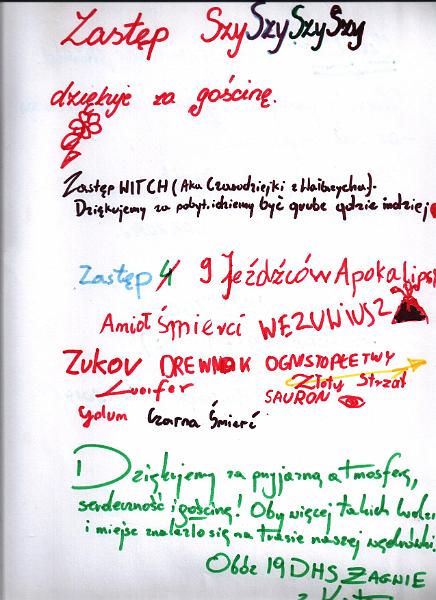 Zastęp SzySzySzySzy
dziękuje za gościnę.
Zastęp WITCH (Aka Czarodziejki z Wałbrzycha).
Dziękujemy za pobyt. idziemy być grube gdzie indziej
Zastęp 4 9 Jeźdźców Apokalips
Amioł Śmierci WEZUWIUSZ
Zukov DREWNIAK OGNISTOPŁETWY
Lucifer Złoty Strzał
SAURON
Golum Czarna Śmierć
Dziękujemy za przyjazną atmosferę,
serdeczność i gościnę! Oby więcej takich ludzi
i miejsc znalazło się na trasie naszej wędrówki
Obóz 19 DHS ZAGNIE
z